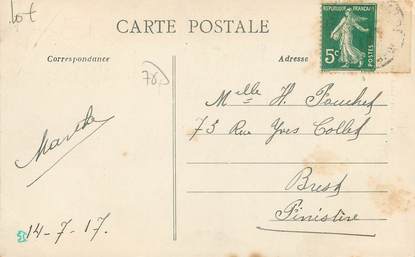 lot
CARTE POSTALE
REPUBLIQUE FRANÇAISE
5c
POSTES
Correspondance
Adresse
78
Melle H. Pouchet
75 Rue Yves Collet
Brest
Finistère
14-7-17.